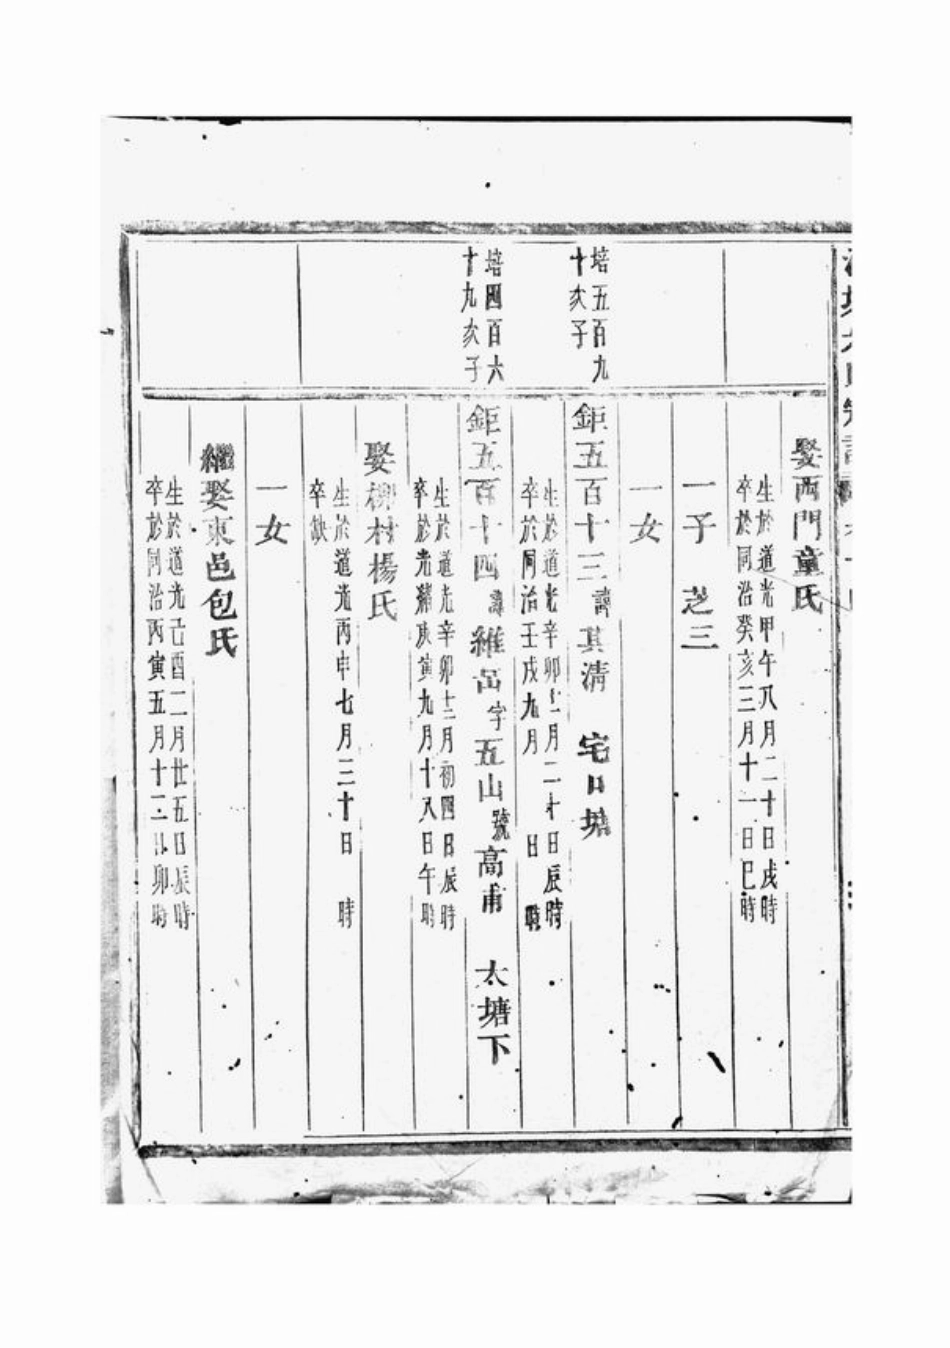 娶西門童氏
生於道光甲午八月二十日戌時
卒於同治癸亥三月十一日巳時
一子 芝三
一女
培五百九
十亥子
鉅五百十三諱其清 宅口塘
生於道光辛卯十二月二十日辰時
卒於同治壬戌九月 日 時
培四百六
十九亥子
鉅五百十四諱維岳字五山號高甫 大塘下
生於道光辛卯十二月初四日辰時
卒於光緒庚寅九月十八日午時
娶柳村楊氏
生於道光丙申七月三十日 時
卒缺
一女
繼娶東邑包氏
生於道光己酉二月廿五日辰時
卒於同治丙寅五月十二日卯時